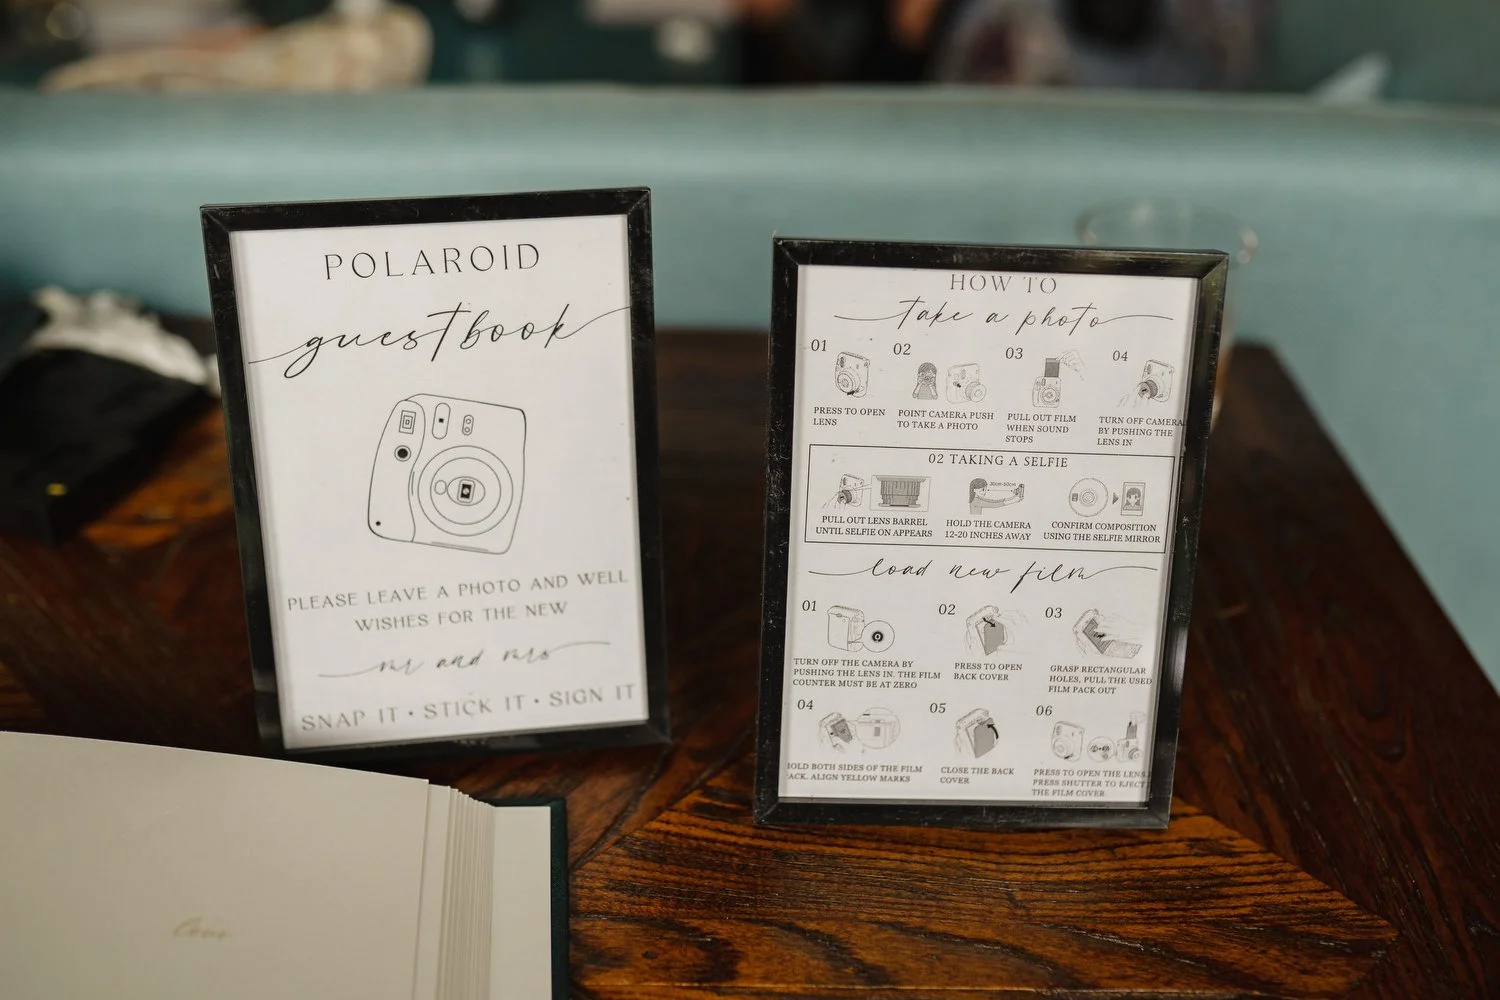 POLAROID
guestbook
PLEASE LEAVE A PHOTO AND WELL
WISHES FOR THE NEW
mr and mrs
SNAP IT • STICK IT • SIGN IT
HOW TO
take a photo
01
PRESS TO OPEN
LENS
02
POINT CAMERA PUSH
TO TAKE A PHOTO
03
PULL OUT FILM
WHEN SOUND
STOPS
04
TURN OFF CAMERA
BY PUSHING THE
LENS IN
02 TAKING A SELFIE
PULL OUT LENS BARREL
UNTIL SELFIE ON APPEARS
30cm-50cm
HOLD THE CAMERA
12-20 INCHES AWAY
CONFIRM COMPOSITION
USING THE SELFIE MIRROR
load new film
01
TURN OFF THE CAMERA BY
PUSHING THE LENS IN. THE FILM
COUNTER MUST BE AT ZERO
02
PRESS TO OPEN
BACK COVER
03
GRASP RECTANGULAR
HOLES, PULL THE USED
FILM PACK OUT
04
OLD BOTH SIDES OF THE FILM
ACK. ALIGN YELLOW MARKS
05
CLOSE THE BACK
COVER
06
PRESS TO OPEN THE LENS.
PRESS SHUTTER TO EJECT
THE FILM COVER